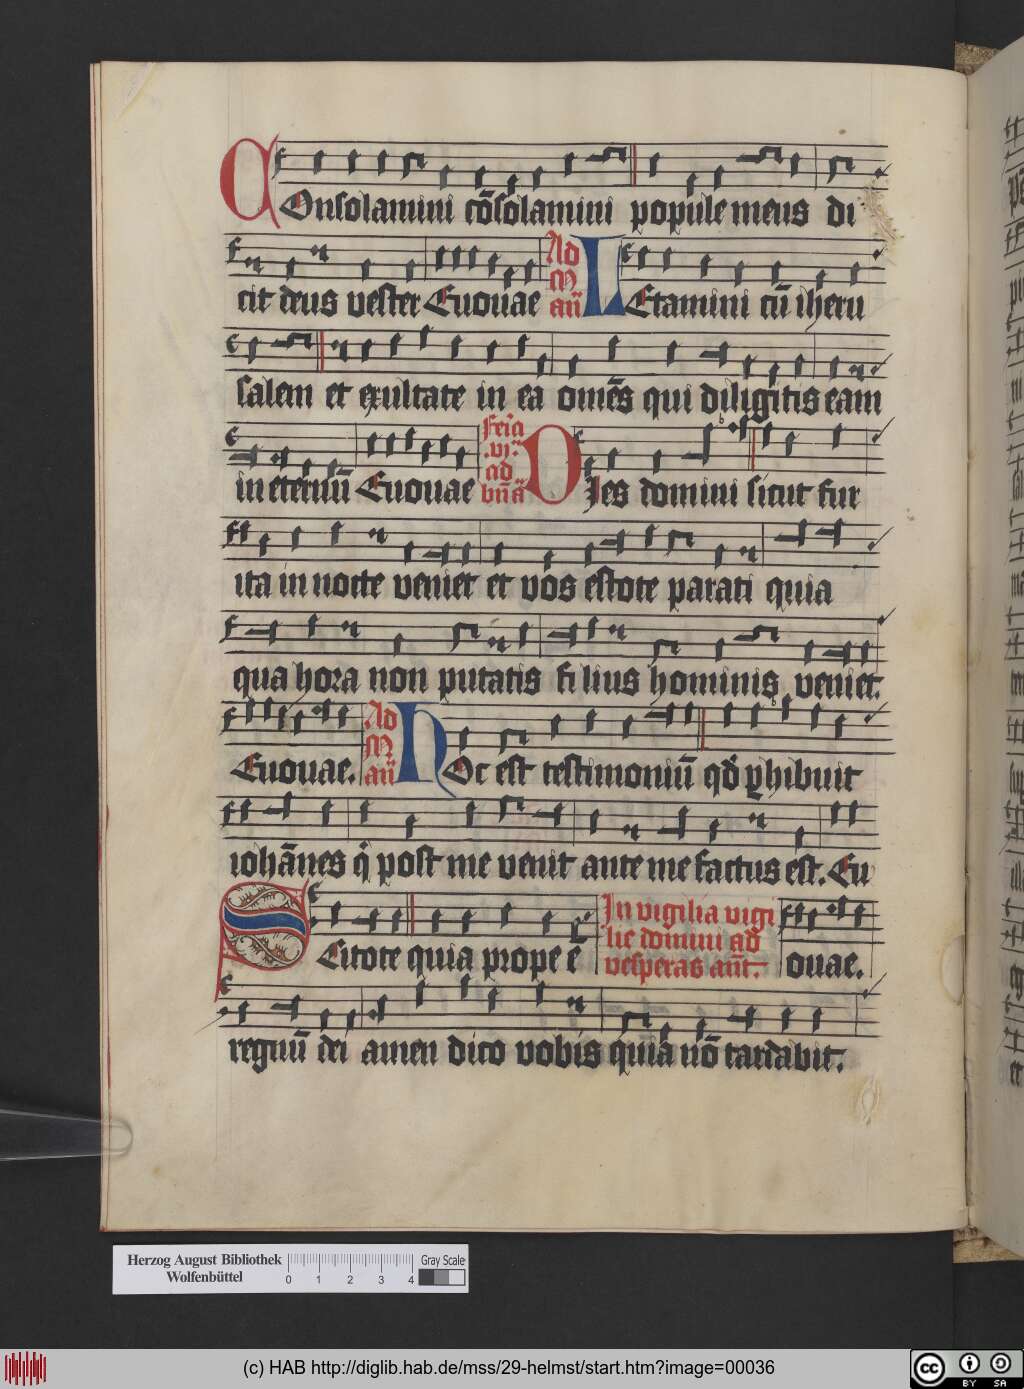 COnsolamini cōsolamini popule meus di
cit deus vester Euouae Ad M añ LEtamini cū iheru
salem et exultate in ea omēs qui diligitis eam
in eternū Euouae feīa .vi. ad bn̄ a DIes domini sicut fur
ita in nocte veniet et vos estote parati quia
qua hora non putatis filius hominis veniet.
Euouae. Ad M añ HOc est testimoniū qd̄ ꝑhibuit
iohānes q̄ post me venit ante me factus est. Eu
SCitote quia prope ē In vigilia vigi
lie domini ad
vesperas añt. ouae.
regnū dei amen dico vobis quia nō tardabit.
Herzog August Bibliothek
Wolfenbüttel
0 1 2 3 4
Gray Scale
(c) HAB http://diglib.hab.de/mss/29-helmst/start.htm?image=00036
cc BY SA